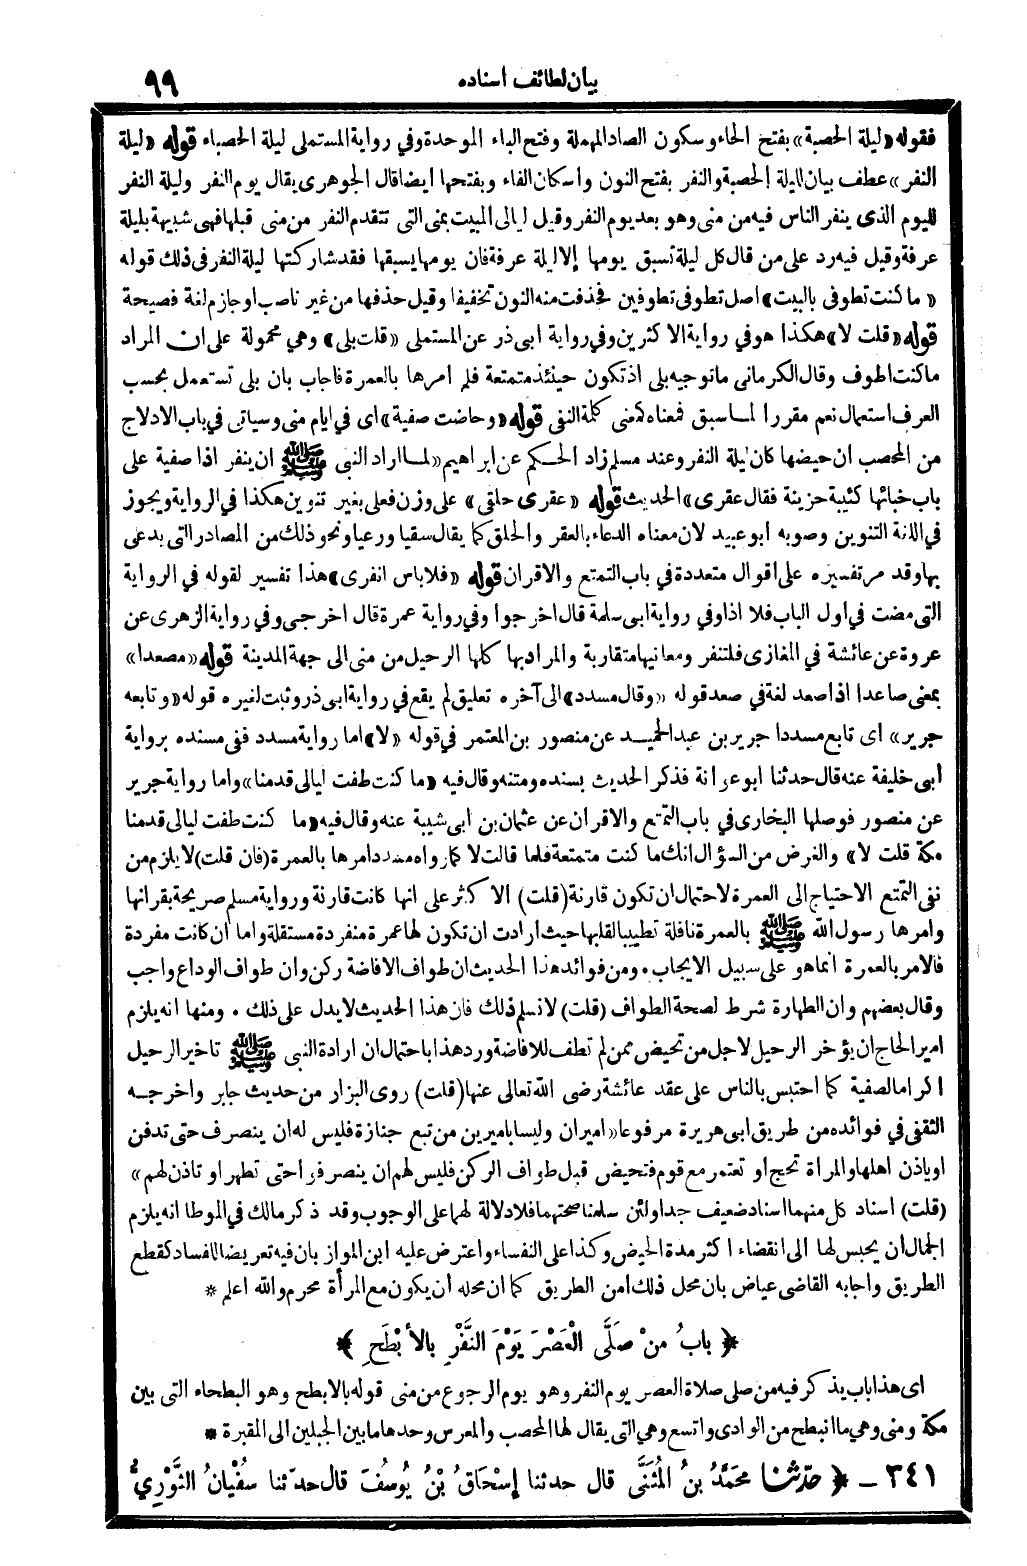 بيان لطائف اسناده
٩٩
فقوله «ليلة الحصبة» بفتح الحاء وسكون الصاد المهملة وفتح الباء الموحدة وفي رواية المستملى ليلة الحصباء قوله «ليلة
النفر» عطف بيان لليلة الحصبة والنفر بفتح النون واسكان الفاء وبفتحها ايضا قال الجوهرى يقال يوم النفر وليلة النفر
لليوم الذى ينفر الناس فيه من منى وهو بعد يوم النفر وقيل ليالى المبيت بمنى التى تتقدم النفر من منى قبلها فهى شبيهة بليلة
عرفة وقيل فيه رد على من قال كل ليلة تسبق يومها إلا ليلة عرفة فان يومها يسبقها فقد شاركتها ليلة النفر فى ذلك قوله
«ما كنت تطوفى بالبيت» اصل تطوفى تطوفين فحذفت منه النون تخفيفا وقيل حذفها من غير ناصب او جازم لغة فصيحة
قوله «قلت لا» هكذا هو في رواية الاكثرين وفي رواية ابى ذر عن المستملى «قلت بلى» وهي محمولة على ان المراد
ما كنت اطوف وقال الكرمانى ما توجيه بلى اذ تكون حينئذ متمتعة فلم امرها بالعمرة فاجاب بان بلى تستعمل بحسب
العرف استعمال نعم مقررا لما سبق فمعناه كمعنى كلمة النفى قوله «وحاضت صفية» اى في ايام منى وسياتى في باب الادلاج
من المحصب ان حيضها كان ليلة النفر وعند مسلم زاد الحكم عن ابراهيم «لما اراد النبى ﷺ ان ينفر اذا صفية على
باب خبائها كئيبة حزينة فقال عقرى» الحديث قوله «عقرى حلقى» على وزن فعلى بغير تنوين هكذا في الرواية ويجوز
في اللغة التنوين وصوبه ابو عبيد لان معناه الدعاء بالعقر والحلق كما يقال سقيا ورعيا ونحو ذلك من المصادر التى يدعى
بها وقد مر تفسيره على اقوال متعددة في باب التمتع والاقران قوله «فلا باس انفرى» هذا تفسير لقوله في الرواية
التى مضت في اول الباب فلا اذا وفي رواية ابى سلمة قال اخرجوا وفي رواية عمرة قال اخرجى وفي رواية الزهرى عن
عروة عن عائشة في المغازى فلتنفر ومعانيها متقاربة والمراد بها كلها الرحيل من منى الى جهة المدينة قوله «مصعدا»
بمعنى صاعدا اذ اصعد لغة في صعد قوله «وقال مسدد» الى آخره تعليق لم يقع في رواية ابى ذر وثبت لغيره قوله «وتابعه
جرير» اى تابع مسددا جرير بن عبد الحميد عن منصور بن المعتمر في قوله «لا» اما رواية مسدد ففى مسنده برواية
ابى خليفة عنه قال حدثنا ابو عوانة فذكر الحديث بسنده ومتنه وقال فيه «ما كنت طفت ليالى قدمنا» واما رواية جرير
عن منصور فوصلها البخارى في باب التمتع والاقران عن عثمان بن ابى شيبة عنه وقال فيه «ما كنت طفت ليالى قدمنا
مكة قلت لا» والغرض من السؤال انك ما كنت متمتعة فلما قالت لا كما رواه مسدد امرها بالعمرة (فان قلت) لا يلزم من
نفى التمتع الاحتياج الى العمرة لاحتمال ان تكون قارنة (قلت) الاكثر على انها كانت قارنة ورواية مسلم صريحة بقرانها
وامرها رسول الله ﷺ بالعمرة نافلة تطييبا لقلبها حيث ارادت ان تكون لها عمرة منفردة مستقلة واما ان كانت مفردة
فالامر بالعمرة انما هو على سبيل الايجاب • ومن فوائد هذا الحديث ان طواف الافاضة ركن وان طواف الوداع واجب
وقال بعضهم وان الطهارة شرط لصحة الطواف (قلت) لا نسلم ذلك فان هذا الحديث لا يدل على ذلك • ومنها انه يلزم
امير الحاج ان يؤخر الرحيل لاجل من تحيض ممن لم تطف للافاضة ورد هذا باحتمال ان ارادة النبى ﷺ تاخير الرحيل
اكراما لصفية كما احتبس بالناس على عقد عائشة رضى الله تعالى عنها (قلت) روى البزار من حديث جابر واخرجه
الثقفى في فوائده من طريق ابى هريرة مرفوعا «اميران وليسا باميرين من تبع جنازة فليس له ان ينصرف حتى تدفن
او ياذن اهلها والمراة تحج او تعتمر مع قوم فتحيض قبل طواف الركن فليس لهم ان ينصرفوا حتى تطهر او تاذن لهم»
(قلت) اسناد كل منهما اسناد ضعيف جدا ولئن سلمنا صحتهما فلا دلالة لهما على الوجوب وقد ذكر مالك في الموطا انه يلزم
الجمال ان يحبس لها الى انقضاء اكثر مدة الحيض وكذا على النفساء واعترض عليه ابن المواز بان فيه تعريضا للفساد كقطع
الطريق واجابه القاضى عياض بان محل ذلك امن الطريق كما ان محله ان يكون مع المرأة محرم والله اعلم *
﴿ بابُ مَنْ صَلَّى الْعَصْرَ يَوْمَ النَّفْرِ بِالأَبْطَحِ ﴾
اى هذا باب يذكر فيه من صلى صلاة العصر يوم النفر وهو يوم الرجوع من منى قوله بالابطح وهو البطحاء التى بين
مكة ومنى وهي ما انبطح من الوادى واتسع وهي التى يقال لها المحصب والمعرس وحدها ما بين الجبلين الى المقبرة *
٣٤١ - ﴿ حدّثنا مُحَمَّدُ بنُ المُثَنَّى قال حدثنا إسْحَاقُ بْنُ يُوسُفَ قال حدّثنا سُفْيانُ الثَّوْرِيُّ